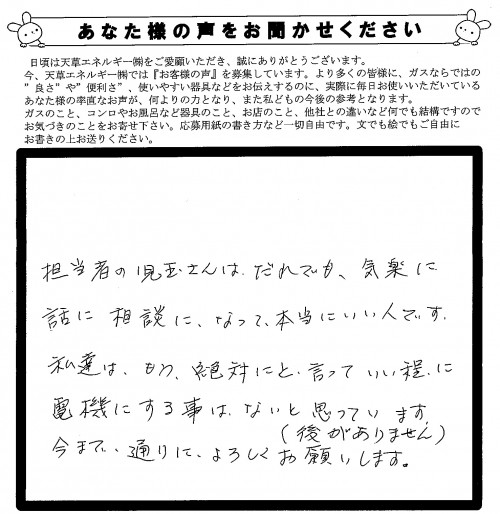 あなた様の声をお聞かせください
日頃は天草エネルギー㈱をご愛顧いただき、誠にありがとうございます。
今、天草エネルギー㈱では『お客様の声』を募集しています。より多くの皆様に、ガスならではの
”良さ”や”便利さ”、使いやすい器具などをお伝えするのに、実際に毎日お使いいただいている
あなた様の率直なお声が、何よりの力となり、また私どもの今後の参考となります。
ガスのこと、コンロやお風呂など器具のこと、お店のこと、他社との違いなど何でも結構ですので
お気づきのことをお寄せ下さい。応募用紙の書き方など一切自由です。文でも絵でもご自由に
お書きの上お送りください。
担当者の児玉さんは、だれでも、気楽に
話に相談に、なって、本当にいい人です。
私達は、もう、絶対にと、言っていい程に
電機にする事は、ないと思っています。
(後がありません)
今まで、通りに、よろしくお願いします。